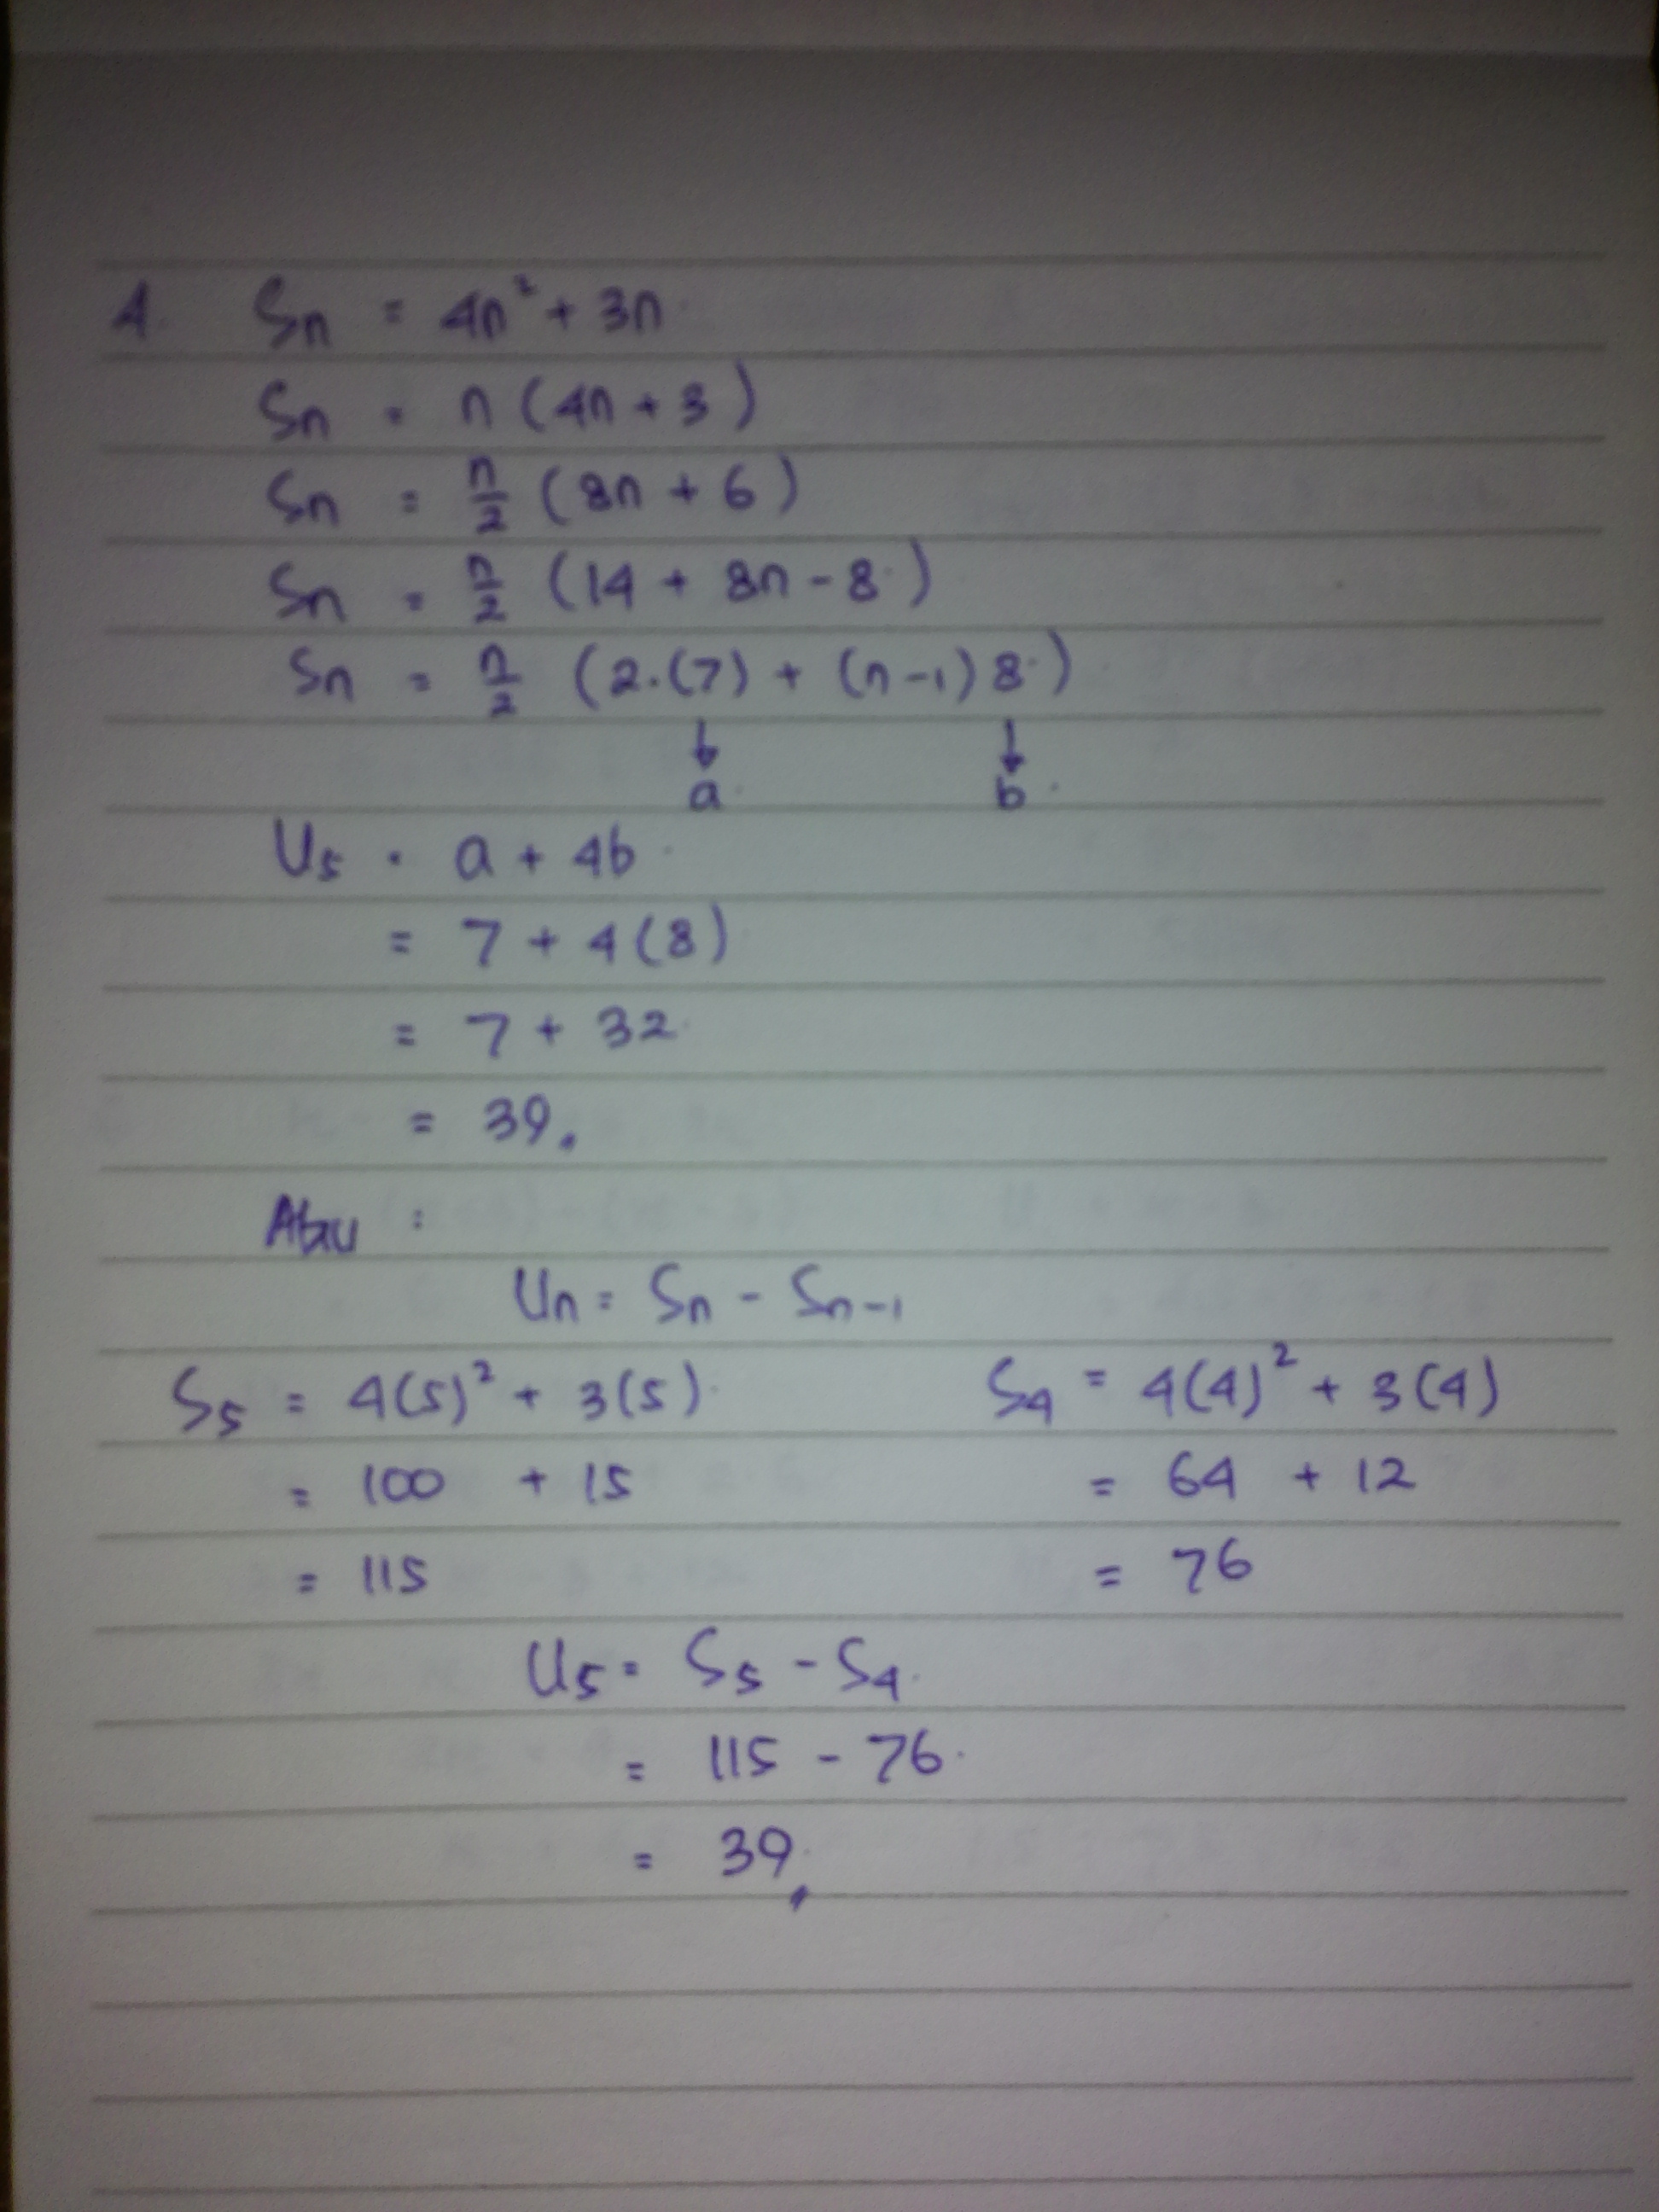 4. Sn = 4n² + 3n
Sn = n (4n + 3)
Sn = n/2 (8n + 6)
Sn = n/2 (14 + 8n - 8)
Sn = n/2 (2.(7) + (n-1) 8)
↓ ↓
a b
U5 = a + 4b
= 7 + 4(8)
= 7 + 32
= 39
Atau :
Un = Sn - Sn-1
S5 = 4(5)² + 3(5) S4 = 4(4)² + 3(4)
= 100 + 15 = 64 + 12
= 115 = 76
U5 = S5 - S4
= 115 - 76
= 39